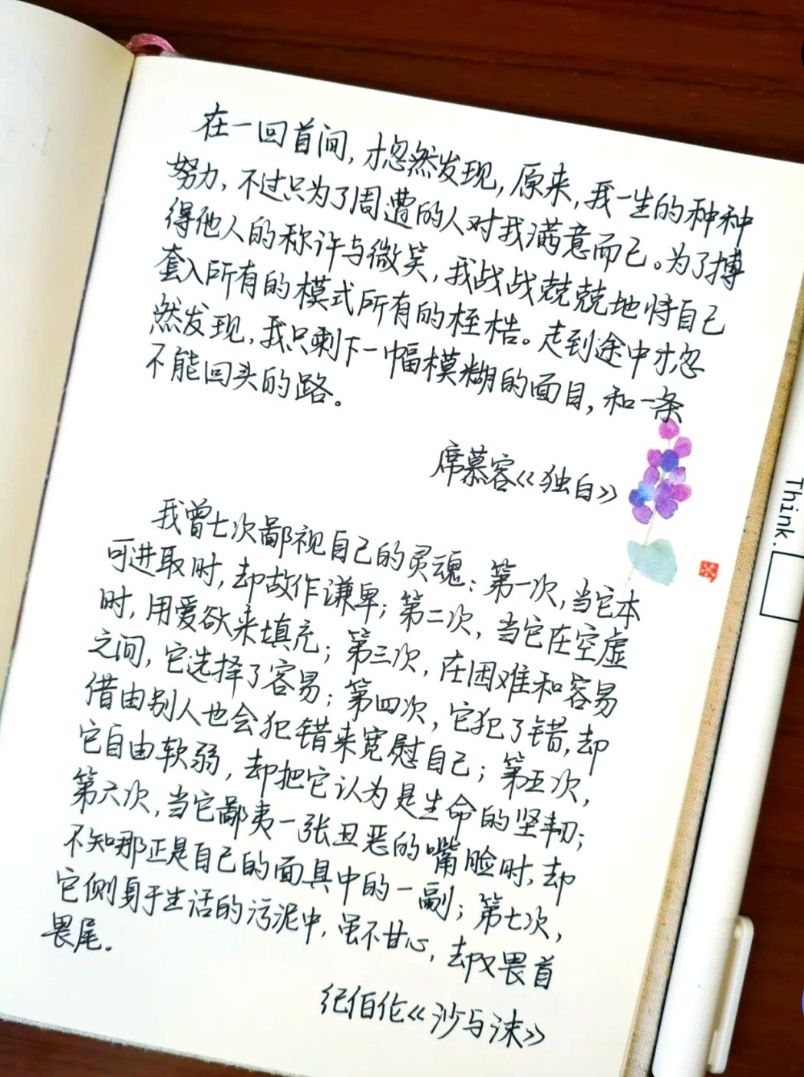 在一回首间，才忽然发现，原来，我一生的种种
努力，不过只为了周遭的人对我满意而已。为了搏
得他人的称许与微笑，我战战兢兢地将自己
套入所有的模式所有的桎梏。走到途中才忽
然发现，我只剩下一幅模糊的面目，和一条
不能回头的路。
席慕容《独白》
我曾七次鄙视自己的灵魂：第一次，当它本
可进取时，却故作谦卑；第二次，当它在空虚
时，用爱欲来填充；第三次，在困难和容易
之间，它选择了容易；第四次，它犯了错，却
借由别人也会犯错来宽慰自己；第五次，
它自由软弱，却把它认为是生命的坚韧；
第六次，当它鄙夷一张丑恶的嘴脸时，却
不知那正是自己的面具中的一副；第七次，
它侧身于生活的污泥中，虽不甘心，却又畏首
畏尾。
纪伯伦《沙与沫》
Think.